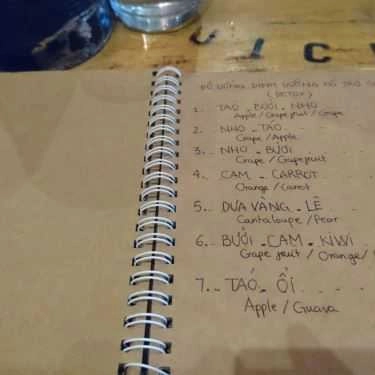 ĐỒ UỐNG DINH DƯỠNG
(DETOX)
1. TÁO BƯỞI NHO
Apple / Grape fruit / Grape
2. NHO TÁO
Grape / Apple
3. NHO BƯỞI
Grape / Grapefruit
4. CAM CARROT
Orange / Carrot
5. DƯA VÀNG LÊ
Cantaloupe / Pear
6. BƯỞI CAM KIWI
Grape fruit / Orange /
7. TÁO ỔI
Apple / Guava